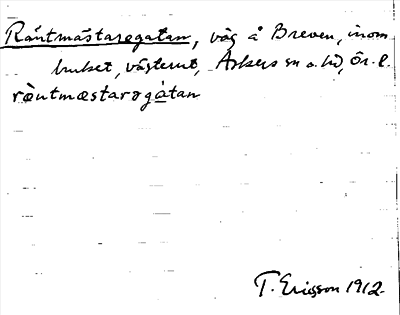 Räntmästaregatan, väg å Breven, inom
bruket, västerut, Askers sn o. hd, Ör. l.
ràntmæstarəgàtan
T. Ericsson 1912.